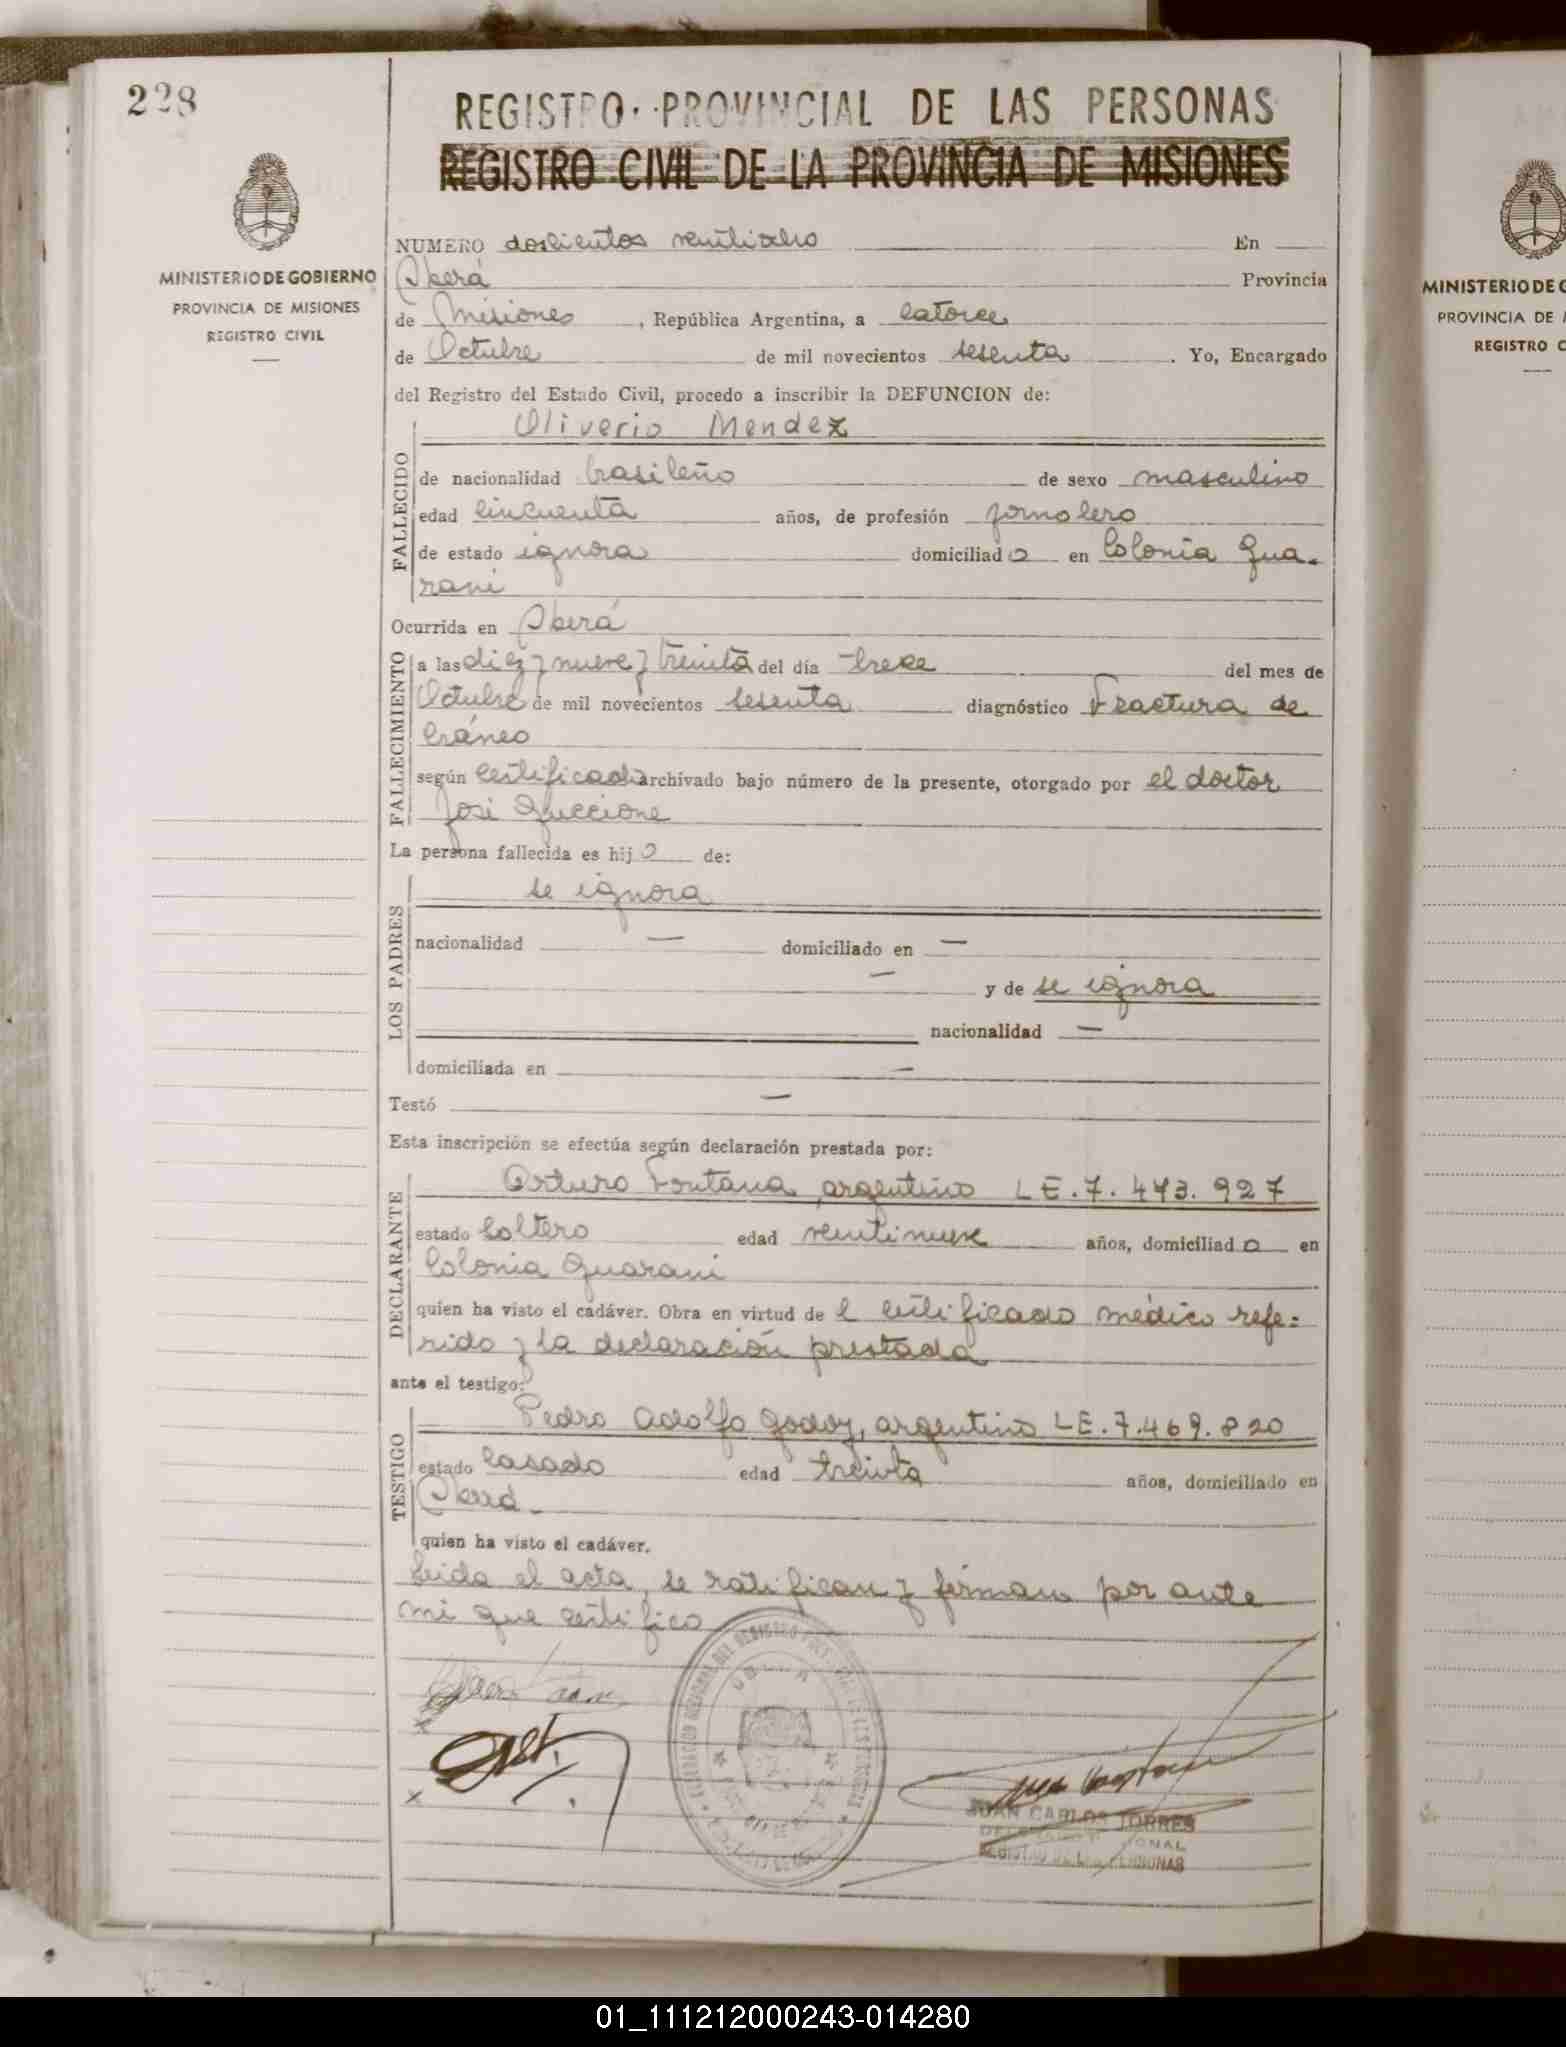 228
REGISTRO PROVINCIAL DE LAS PERSONAS
REGISTRO CIVIL DE LA PROVINCIA DE MISIONES
MINISTERIO DE GOBIERNO
PROVINCIA DE MISIONES
REGISTRO CIVIL
NUMERO doscientos veintiocho En
Oberá Provincia
de Misiones, República Argentina, a catorce
de Octubre de mil novecientos sesenta. Yo, Encargado
del Registro del Estado Civil, procedo a inscribir la DEFUNCION de:
Oliverio Mendez
FALLECIDO
de nacionalidad brasileño de sexo masculino
edad cincuenta años, de profesión jornalero
de estado ignora domiciliado en Colonia Gua-
rani
Ocurrida en Oberá
FALLECIMIENTO
a las diez y nueve y treinta del día trece del mes de
Octubre de mil novecientos sesenta diagnóstico Fractura de
Cráneo
según certificado archivado bajo número de la presente, otorgado por el doctor
José Guccione
La persona fallecida es hijo de:
LOS PADRES
se ignora
nacionalidad — domiciliado en —
— y de se ignora
nacionalidad —
domiciliada en —
Testó —
Esta inscripción se efectúa según declaración prestada por:
DECLARANTE
Arturo Fontana, argentino LE.7.473.927
estado soltero edad veintinueve años, domiciliado en
Colonia Guarani
quien ha visto el cadáver. Obra en virtud del certificado médico refe=
rido y la declaración prestada
ante el testigo:
TESTIGO
Pedro Adolfo Godoy, argentino LE.7.469.820
estado casado edad treinta años, domiciliado en
Oberá
quien ha visto el cadáver.
Leida el acta, se ratifican y firman por ante
mi que certifico
JUAN CARLOS TORRES
REGISTRO DE LAS PERSONAS
MINISTERIO DE G
PROVINCIA DE
REGISTRO C
01_111212000243-014280